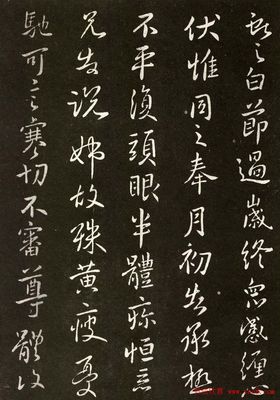 之白節過歲終眾感纏
伏惟同之奉月初告承極
不平復頭眼半體疼恒
兄告說姊故殊黃瘦憂
馳可言寒切不審尊體復